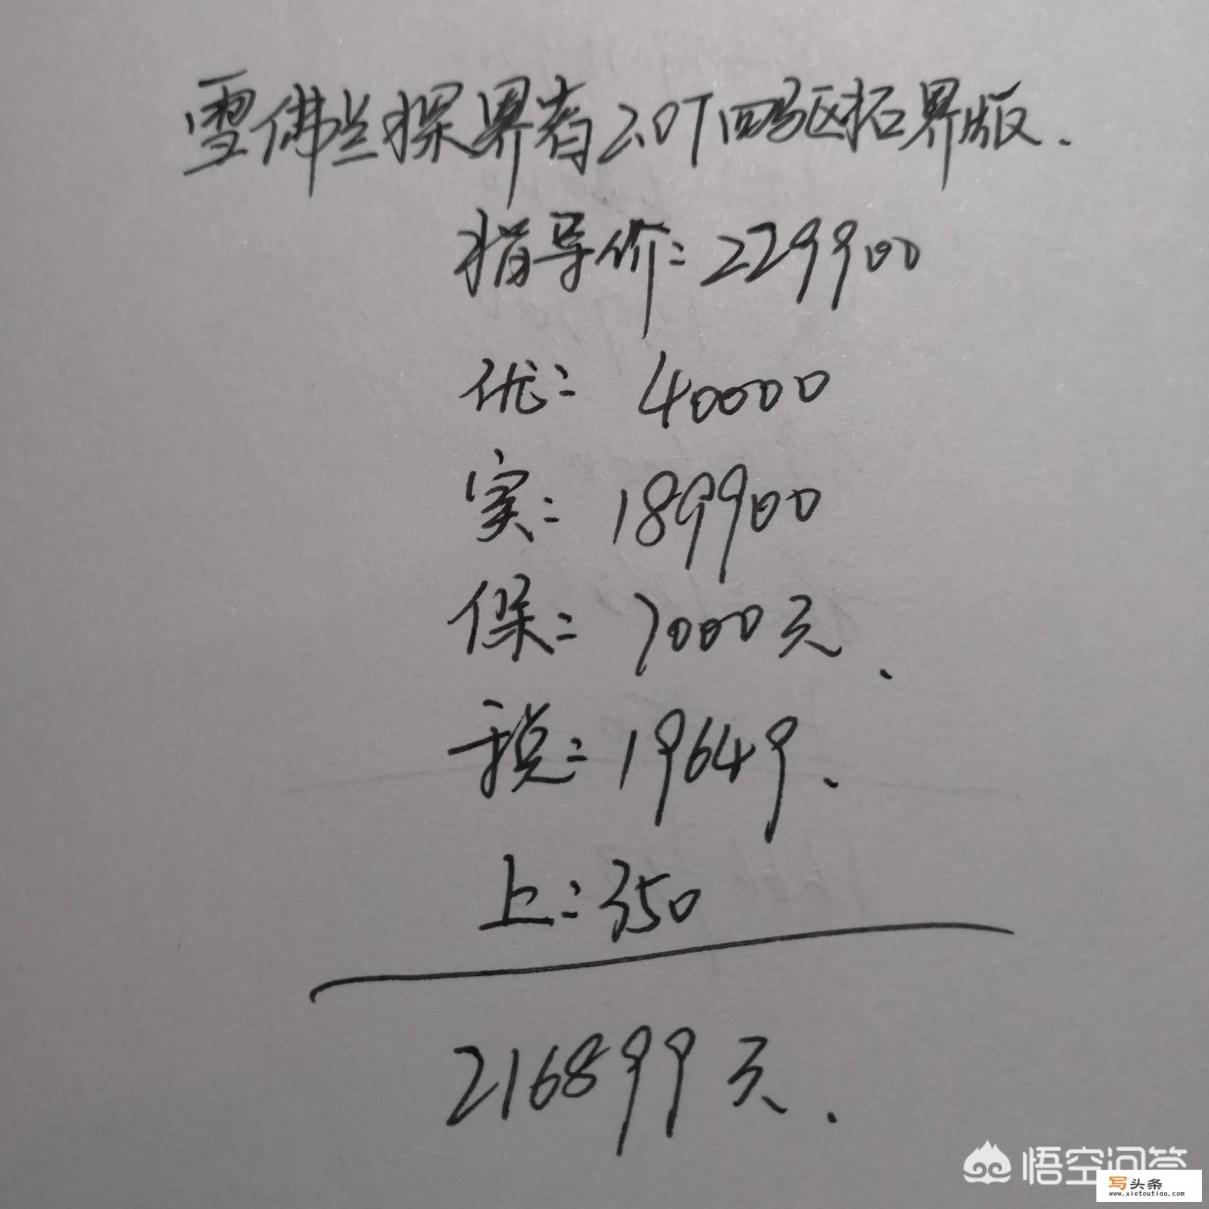 雪佛兰探界者2.0T四驱拓界版.
指导价:229900
优:40000
实:189900
保:7000元.
税:19649.
上:350
216899元.
悟空问答
写头条
www.xietoutiao.com